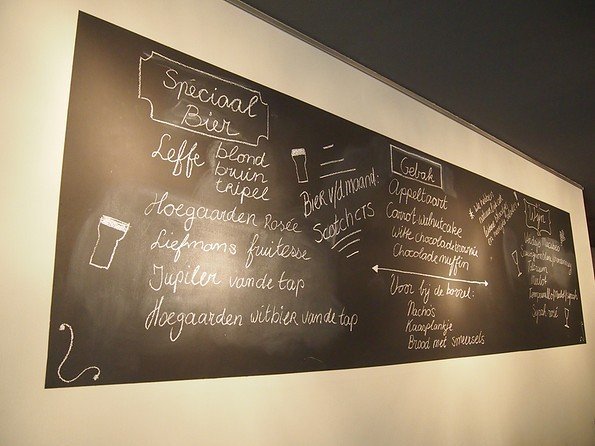 Speciaal
Bier
Leffe blond
bruin
tripel
Hoegaarden Rosée
Liefmans fruitesse
Jupiler van de tap
Hoegaarden witbier van de tap
Bier v/d maand:
Scotch CTS
Gebak
Appeltaart
Carrot walnutcake
Witte chocoladebrownie
Chocolade muffin
Voor bij de borrel:
Nachos
Kaasplankje
Brood met smeersels
Wijn
Merlot
Syrah rosé